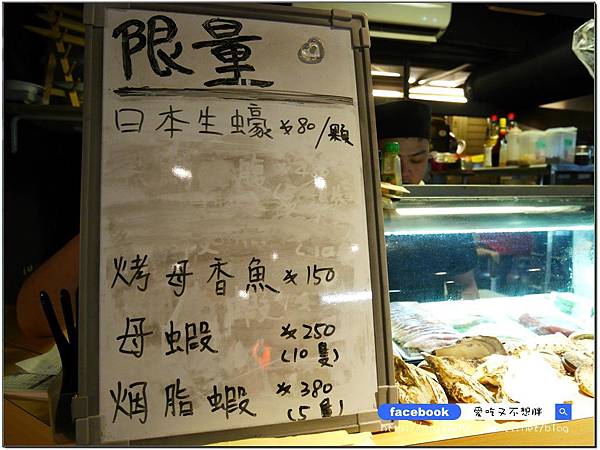 限量
日本生蠔 ¥80/顆
烤母香魚 ¥150
母蝦 ¥250
(10隻)
烟脂蝦 ¥380
(5隻)
facebook 愛吃又不想胖